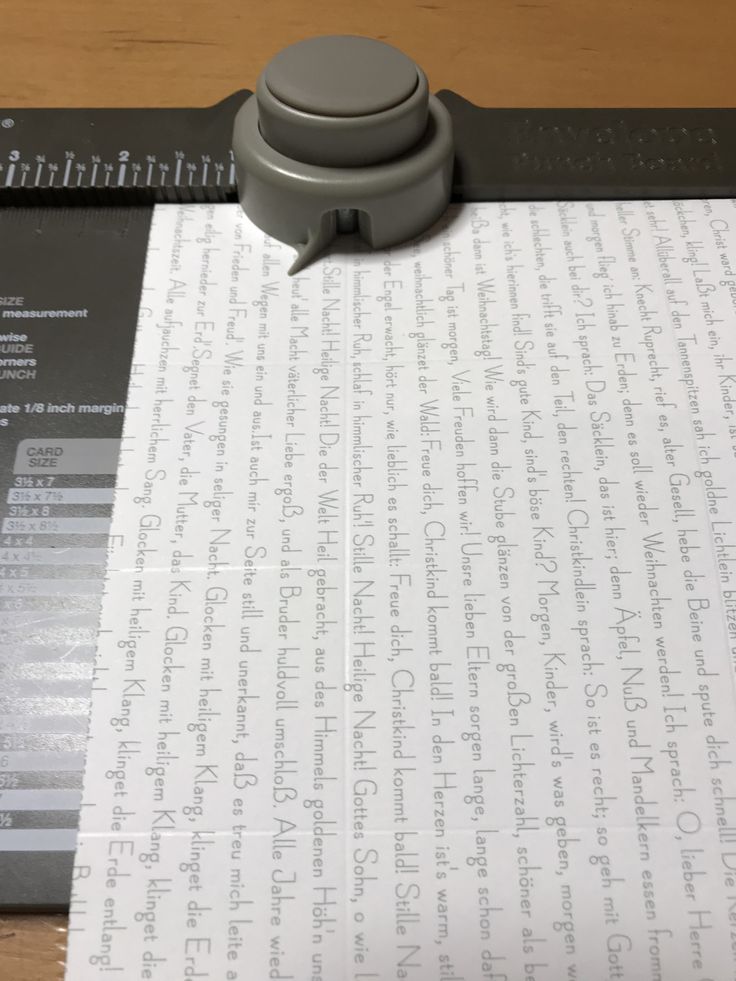 ®
3 2
Envelope
Punch Board
SIZE
measurement
wise
GUIDE
orners
UNCH
ate 1/8 inch margin
s
CARD
SIZE
3½ x 7
3½ x 7½
3½ x 8
3½ x 8½
4 x 4
4 x 4½
4 x 5
ren, Christ ward gebo
öckchen, kling! Laßt mich ein, ihr Kinder, ist so
et sehr! Allüberall auf den Tannenspitzen sah ich goldne Lichtlein blitzen und
heller Stimme an: Knecht Ruprecht, rief es, alter Gesell, hebe die Beine und spute dich schnell! Die Kerzen
und morgen flieg ich hinab zu Erden; denn es soll wieder Weihnachten werden! Ich sprach: O, lieber Herre
Säcklein auch bei dir? Ich sprach: Das Säcklein, das ist hier; denn Äpfel, Nuß und Mandelkern essen fromm
die schlechten, die trifft sie auf den Teil, den rechten! Christkindlein sprach: So ist es recht; so geh mit Gott
cht, wie ich's hierinnen find! Sind's gute Kind, sind's böse Kind? Morgen, Kinder, wird's was geben, morgen we
heißa dann ist Weihnachtstag! Wie wird dann die Stube glänzen von der großen Lichterzahl, schöner als be
schöner Tag ist morgen, Viele Freuden hoffen wir! Unsre lieben Eltern sorgen lange, lange schon daf
weihnachtlich glänzet der Wald: Freue dich, Christkind kommt bald! In den Herzen ist's warm, stil
der Engel erwacht, hört nur, wie lieblich es schallt: Freue dich, Christkind kommt bald! Stille Na
in himmlischer Ruh, schlaf in himmlischer Ruh'! Stille Nacht! Heilige Nacht! Gottes Sohn, o wie l
Stille Nacht! Heilige Nacht! Die der Welt Heil gebracht, aus des Himmels goldenen Höh'n uns
heut' alle Macht väterlicher Liebe ergoß, und als Bruder huldvoll umschloß. Alle Jahre wied
auf allen Wegen mit uns ein und aus. Ist auch mir zur Seite still und unerkannt, daß es treu mich leite a
er von Frieden und Freud'. Wie sie gesungen in seliger Nacht. Glocken mit heiligem Klang, klinget die Erd
gen edig hernieder zur Erd'. Segnet den Vater, die Mutter, das Kind. Glocken mit heiligem Klang, klinget die
Weihnachtszeit. Alle aufjauchzen mit herrlichem Sang. Glocken mit heiligem Klang, klinget die Erde entlang!